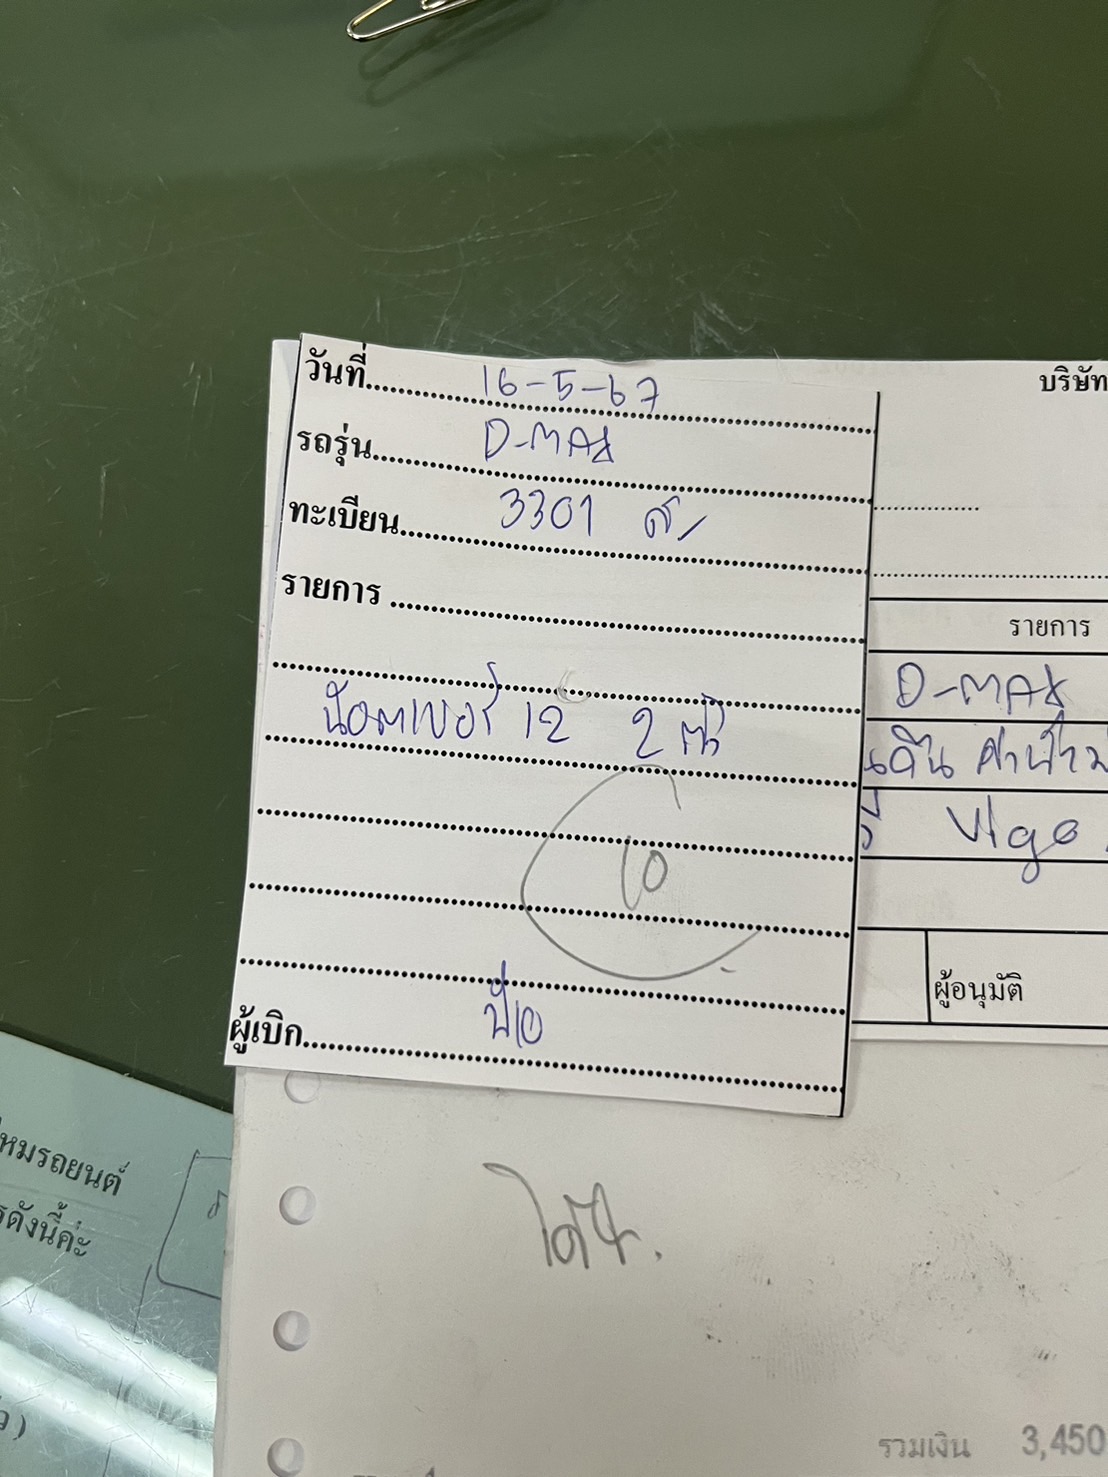 วันที่ 16-5-67
รถรุ่น D-MAX
ทะเบียน 3301 ส
รายการ
น๊อตเบอร์ 12 2 ตัว
10
ผู้เบิก
บริษัท
รายการ
D-MAX
Vigo
ผู้อนุมัติ
ไหมรถยนต์
รดังนี้ค่ะ
รวมเงิน 3,450